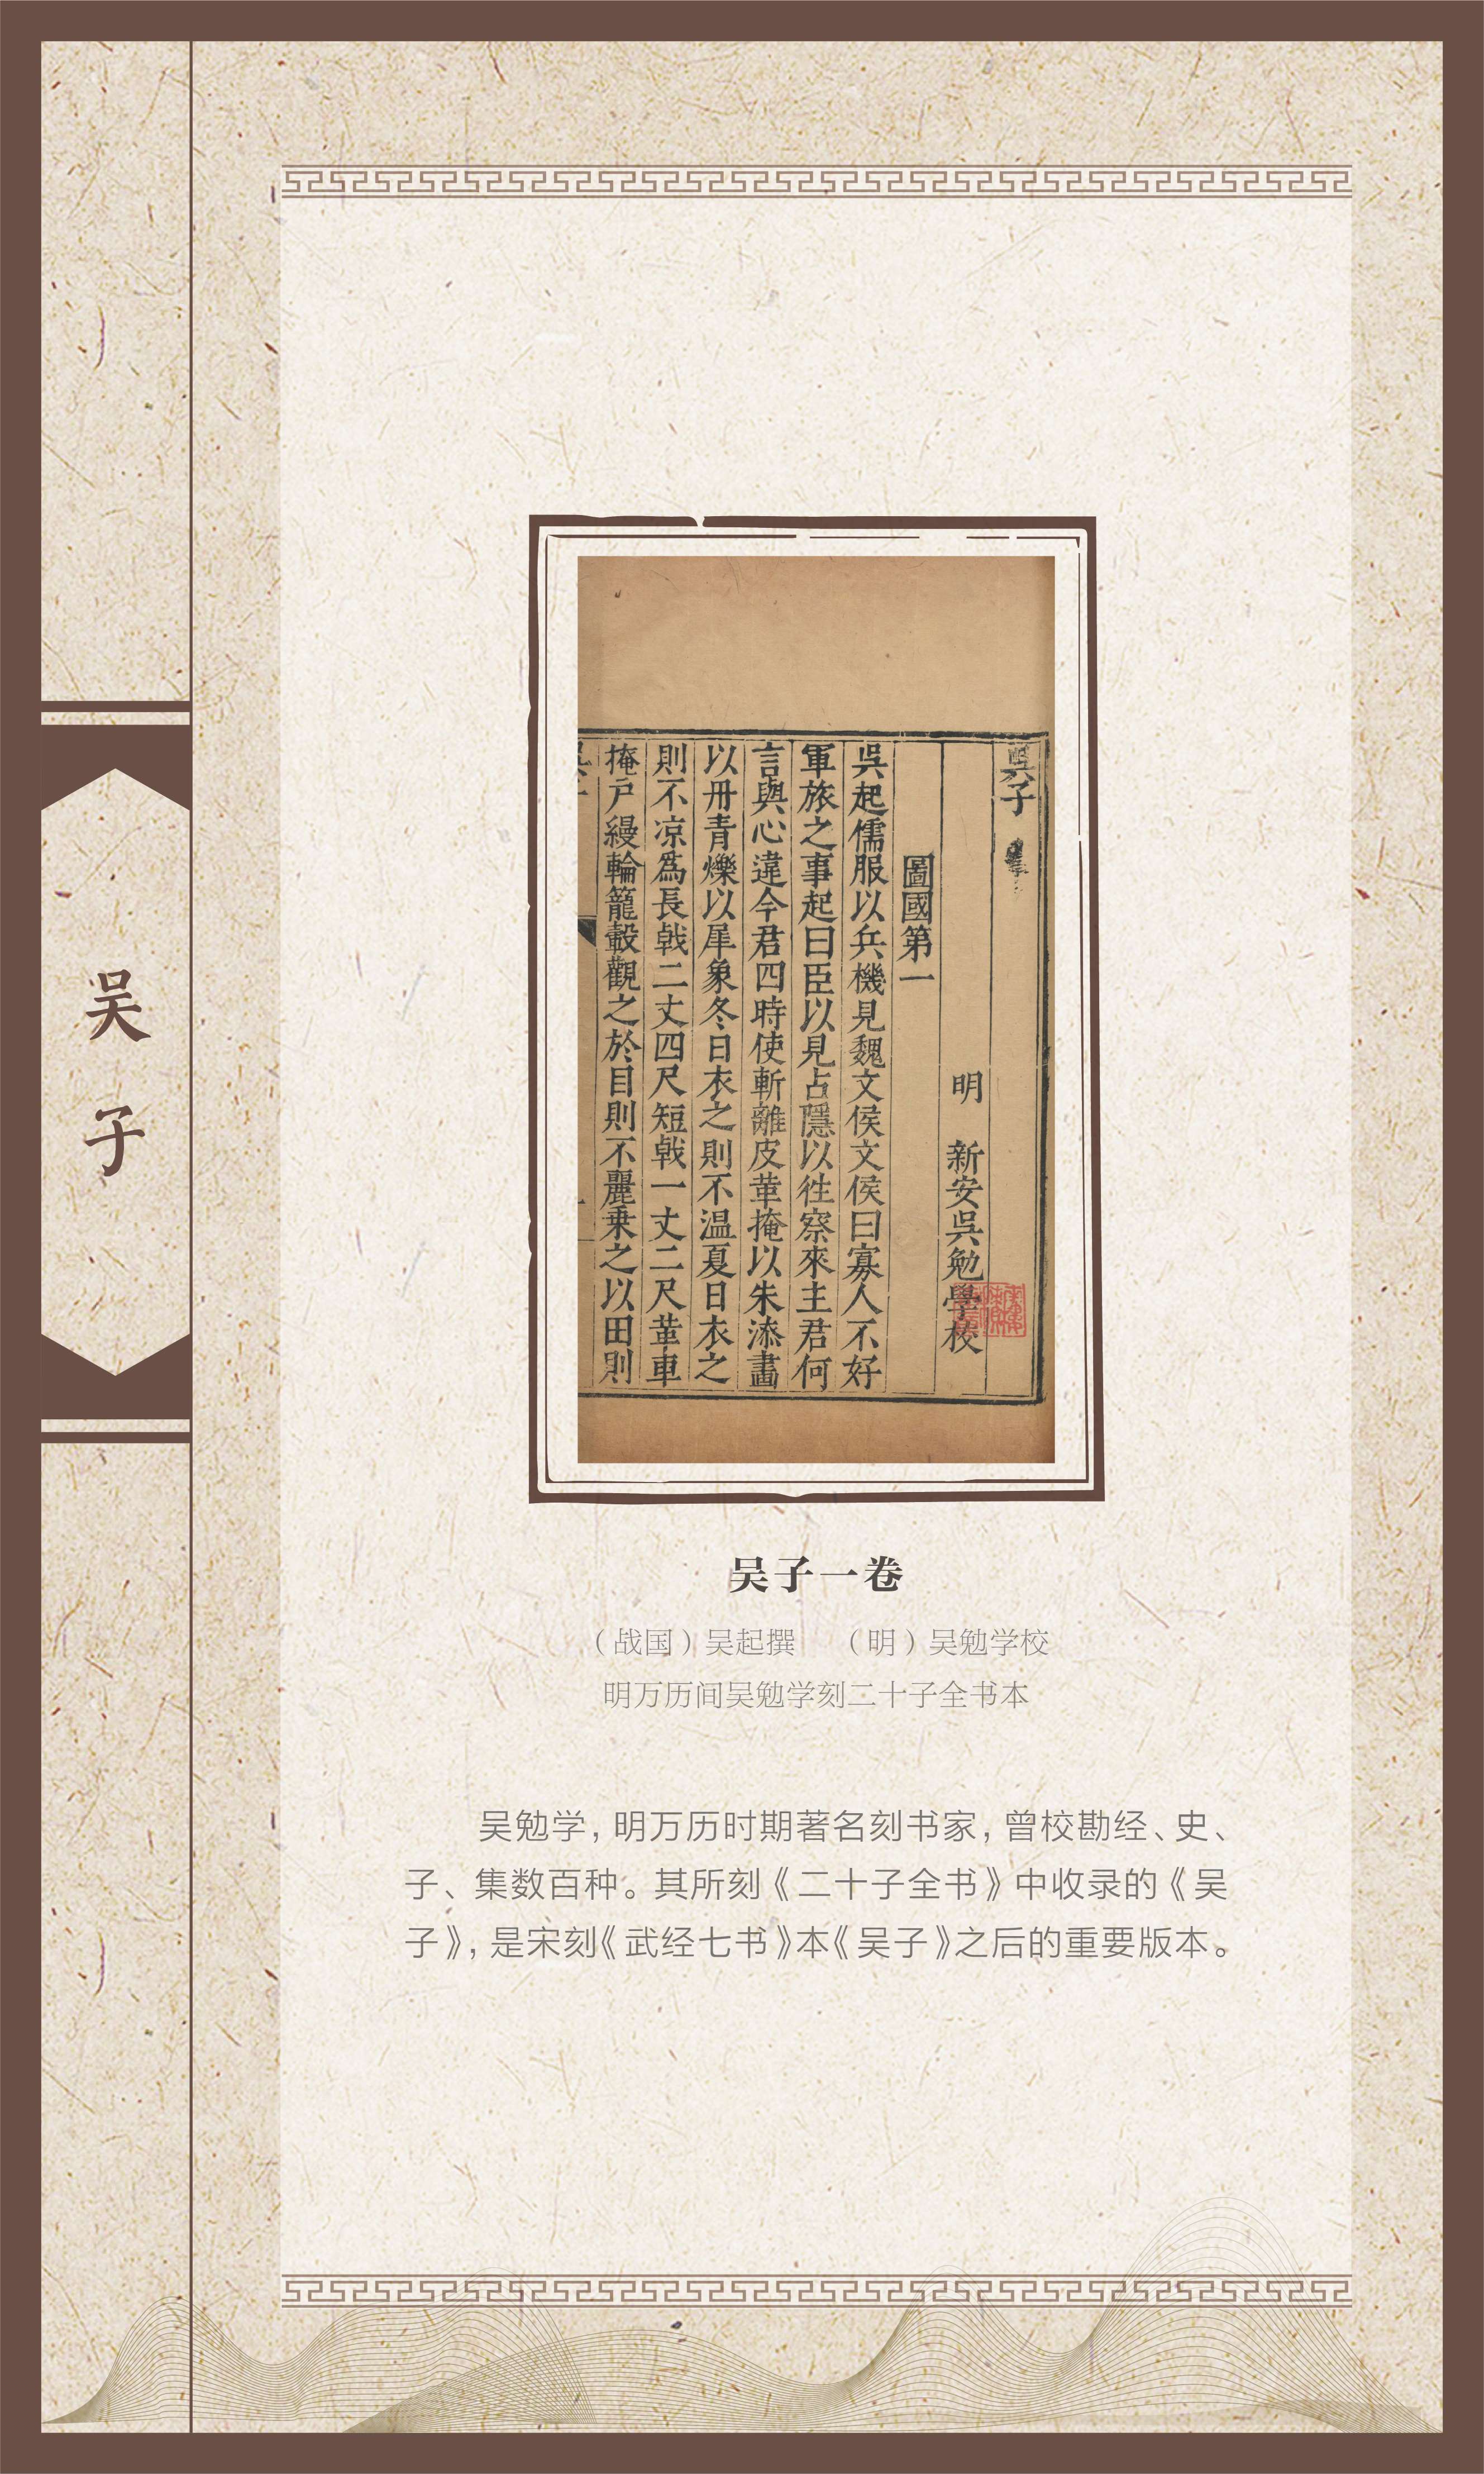 吴子
吳子
明 新安吳勉學校
圖國第一
吳起儒服以兵機見魏文侯文侯曰寡人不好
軍旅之事起曰臣以見占隱以徃察來主君何
言與心違今君四時使斬離皮革掩以朱添畵
以冊青爍以犀象冬日衣之則不温夏日衣之
則不凉爲長戟二丈四尺短戟一丈二尺革車
掩戶縵輪籠轂觀之於目則不麗乗之以田則
吴子一卷
（战国）吴起撰 （明）吴勉学校
明万历间吴勉学刻二十子全书本
吴勉学，明万历时期著名刻书家，曾校勘经、史、
子、集数百种。其所刻《二十子全书》中收录的《吴
子》，是宋刻《武经七书》本《吴子》之后的重要版本。